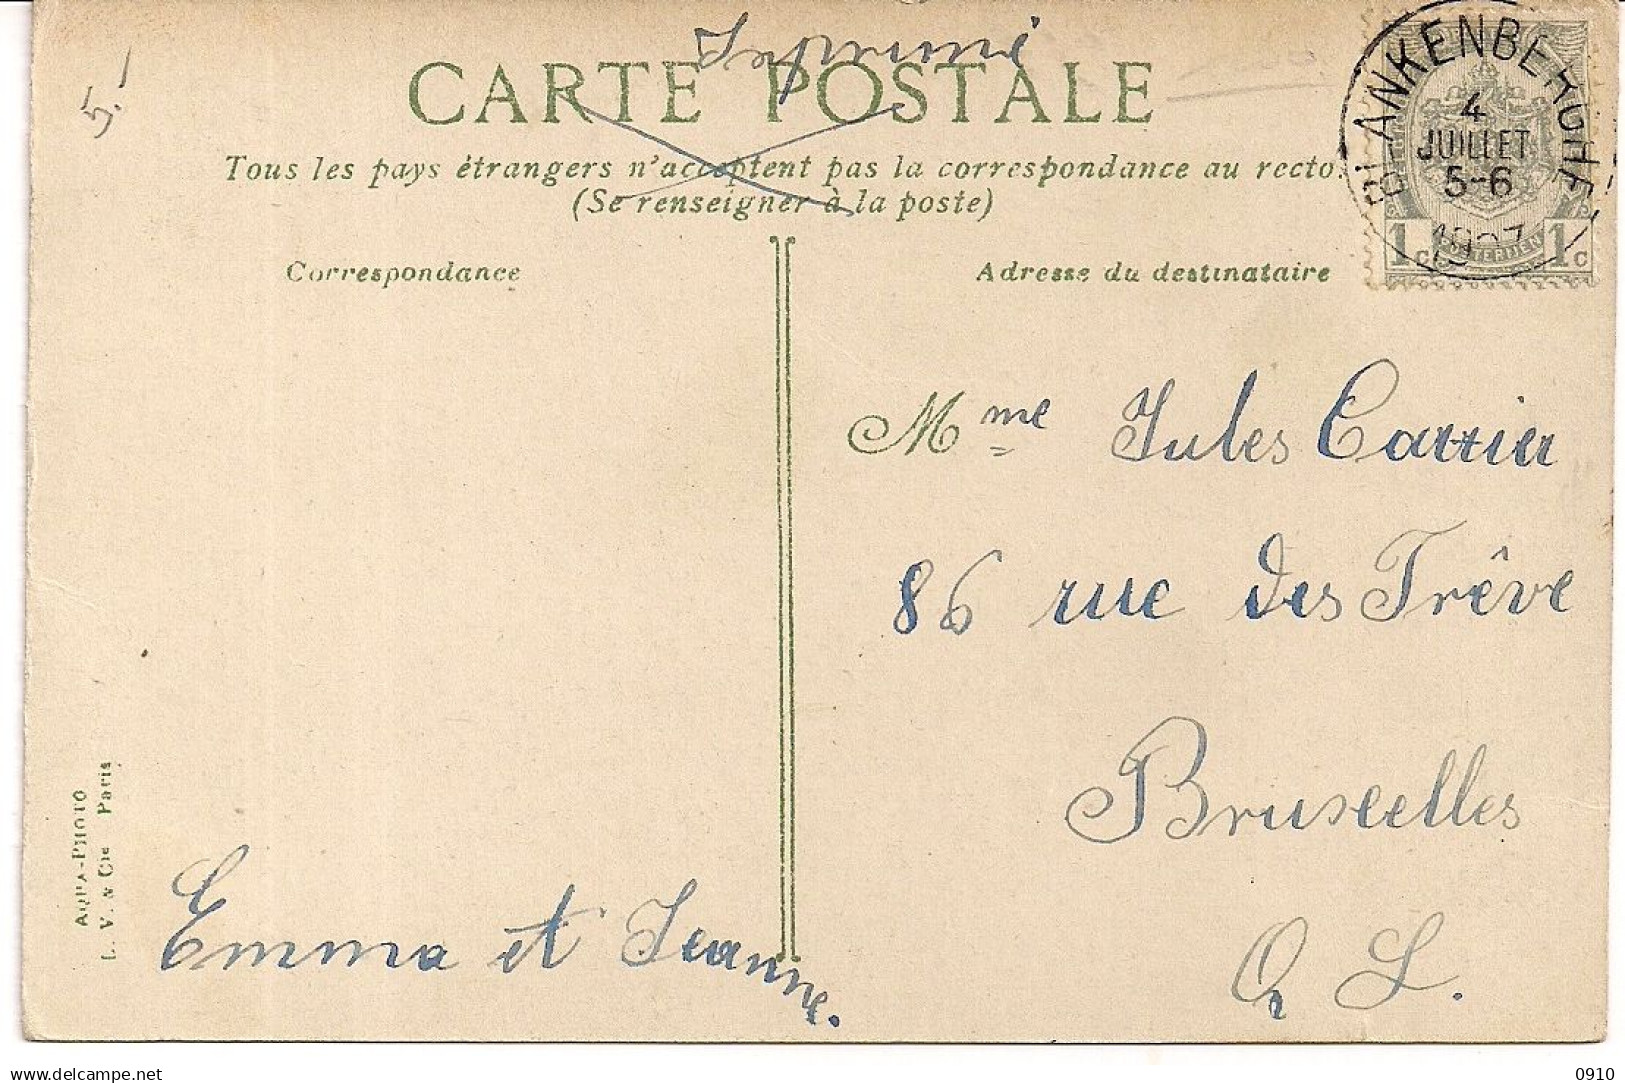 Imprimé
5.-
CARTE POSTALE
Tous les pays étrangers n'acceptent pas la correspondance au recto.
(Se renseigner à la poste)
Correspondance
Adresse du destinataire
BLANKENBERGHE
4
JUILLET
5-6
1907
1c 1c
Mme Jules Carrier
86 rue des Trêve
Bruxelles
Q L.
Emma et Jeanne.
AQUA-PHOTO
L. V. & Cie Paris
www.delcampe.net
0910